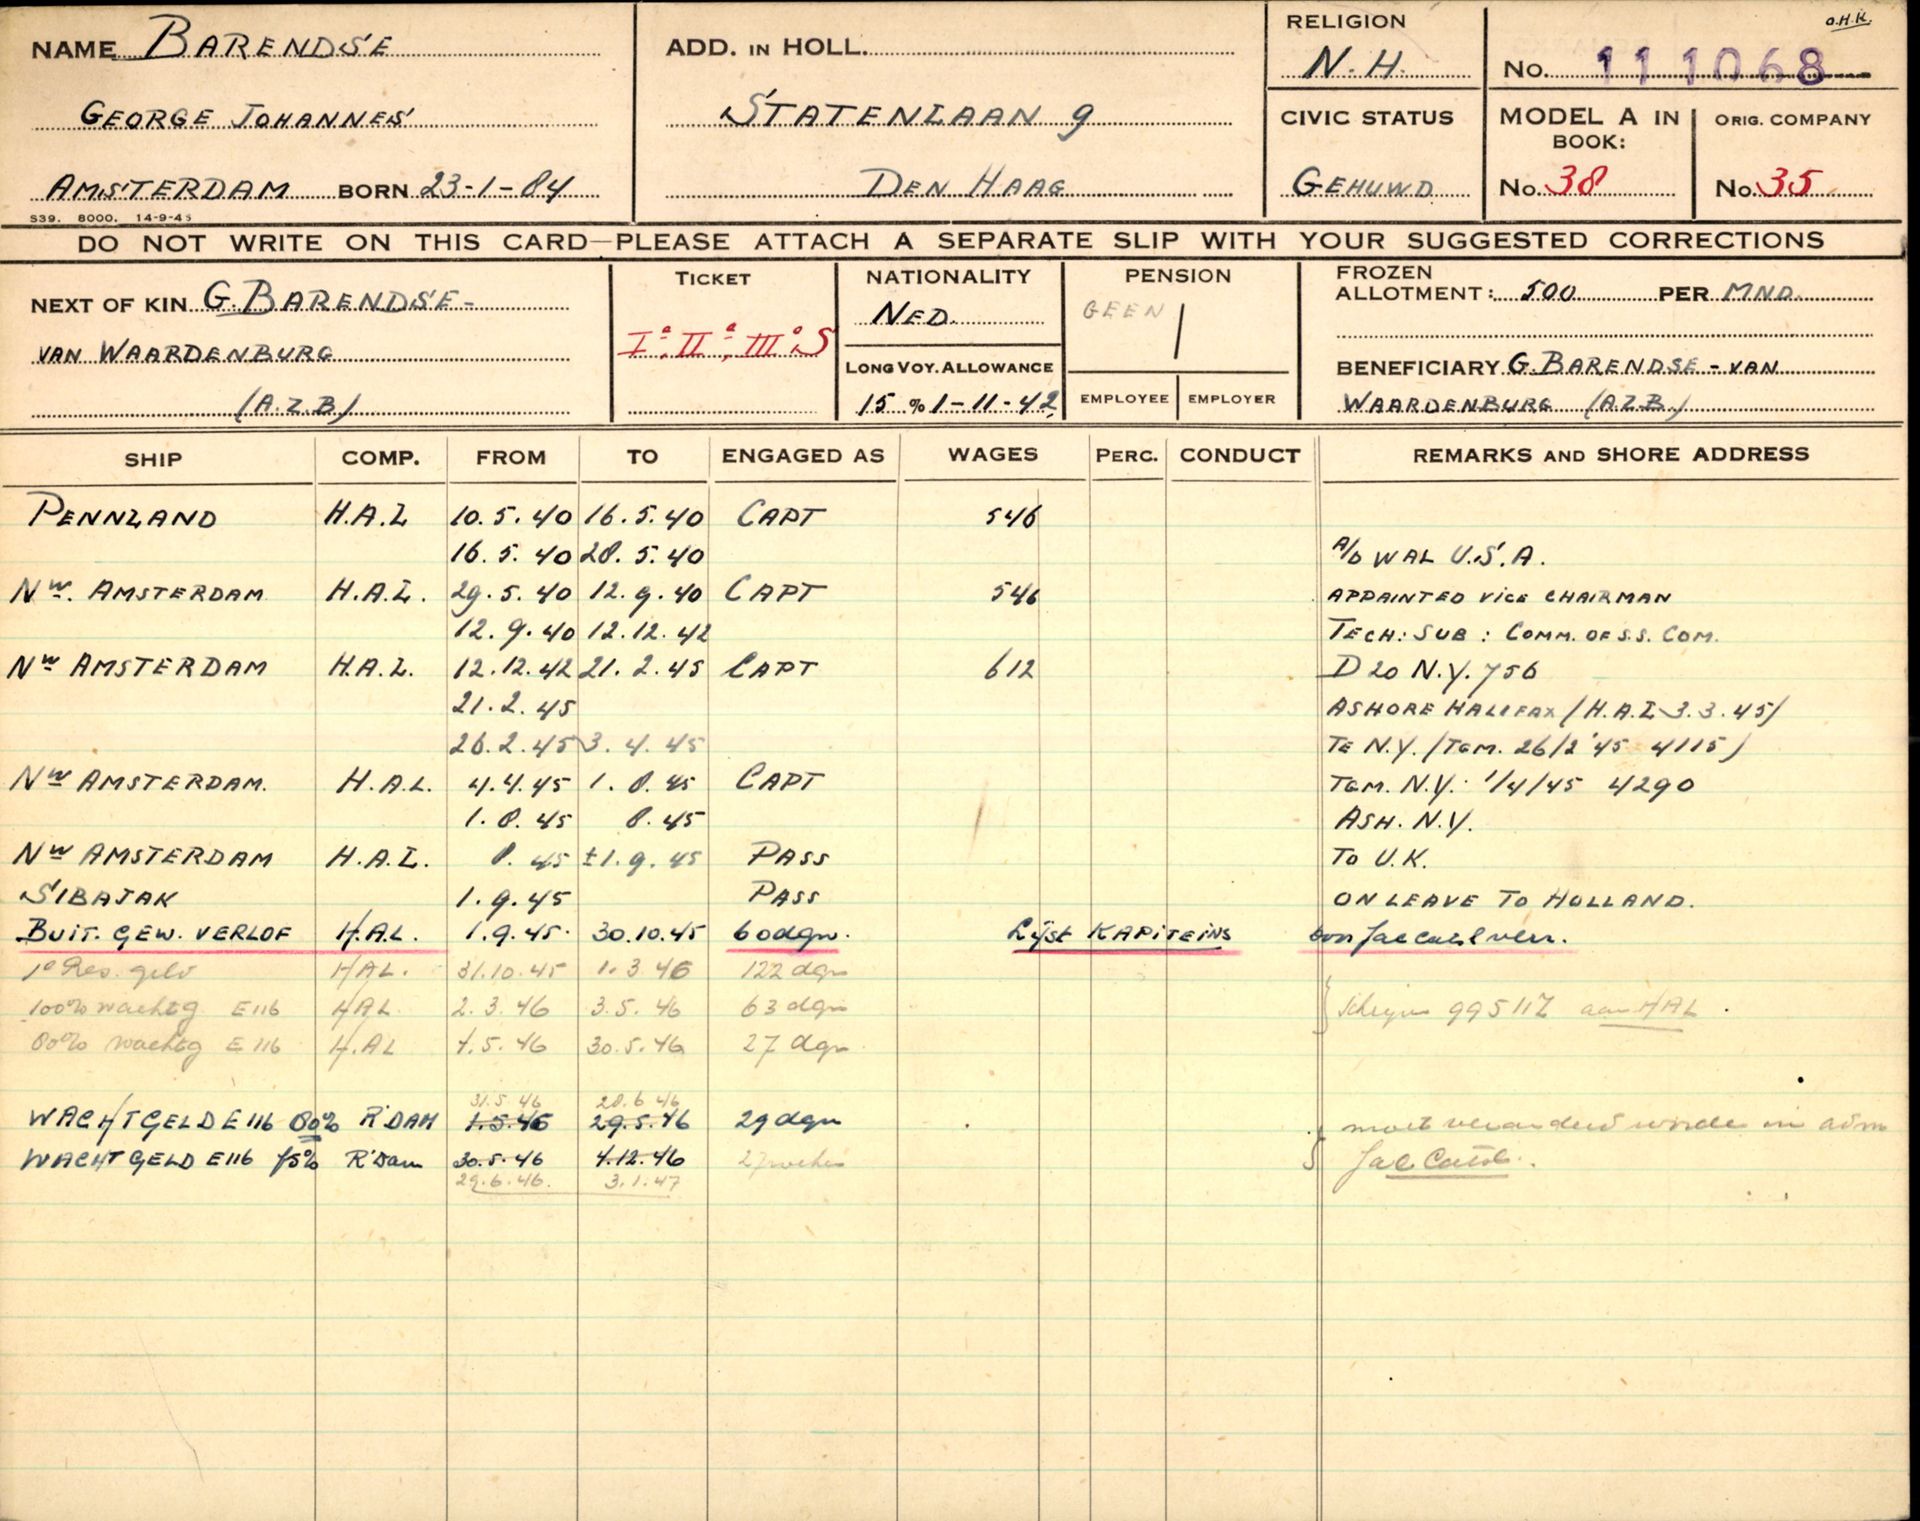 O.H.K.
NAME BARENDSE
GEORGE JOHANNES
AMSTERDAM BORN 23-1-84
S39. 8000. 14-9-43
ADD. IN HOLL.
STATENLAAN 9
DEN HAAG
RELIGION
N.H.
CIVIC STATUS
GEHUWD
No. 111068
MODEL A IN BOOK:
No. 38
ORIG. COMPANY
No. 35
DO NOT WRITE ON THIS CARD—PLEASE ATTACH A SEPARATE SLIP WITH YOUR SUGGESTED CORRECTIONS
NEXT OF KIN G. BARENDSE-
VAN WAARDENBURG
(A.Z.B)
TICKET
Ie, IIe, IIIe S
NATIONALITY
NED.
LONG VOY. ALLOWANCE
15 % 1-11-42
PENSION
GEEN
EMPLOYEE EMPLOYER
FROZEN
ALLOTMENT: 500 PER MND.
BENEFICIARY G. BARENDSE - VAN
WAARDENBURG (A.Z.B.)
SHIP COMP. FROM TO ENGAGED AS WAGES PERC. CONDUCT REMARKS AND SHORE ADDRESS
PENNLAND H.A.L 10.5.40 16.5.40 CAPT 546
16.5.40 28.5.40 A/D WAL U.S.A.
Nw. AMSTERDAM H.A.L. 29.5.40 12.9.40 CAPT 546 APPAINTED VICE CHAIRMAN
12.9.40 12.12.42 TECH: SUB: COMM. OF S.S. COM.
Nw AMSTERDAM H.A.L. 12.12.42 21.2.45 CAPT 612 D 20 N.Y. 756
21.2.45 ASHORE HALIFAX (H.A.L 3.3.45)
26.2.45 3.4.45 TE N.Y. (TGM. 26/2 '45 4115)
Nw AMSTERDAM. H.A.L. 4.4.45 1.8.45 CAPT TGM. N.Y. 1/4/45 4290
1.8.45 8.45 ASH. N.Y.
Nw AMSTERDAM H.A.L. 8.45 ±1.9.45 PASS TO U.K.
SIBAJAK 1.9.45 PASS ON LEAVE TO HOLLAND.
BUIT. GEW. VERLOF H.A.L. 1.9.45 30.10.45 60 dgn. Lijst KAPITEINS
1e Res. geld HAL. 31.10.45 1.3.46 122 dgn
100% wachtg E116 HAL 2.3.46 3.5.46 63 dgn 995117 aan HAL.
80% wachtg E116 H.AL 4.5.46 30.5.46 27 dgn
31.5.46 28.6.46
WACHTGELD E116 80% R'DAM 1.5.46 29.5.46 29 dgn moet veranderd worden in adm
WACHTGELD E116 75% R'Dam 30.5.46 4.12.46 27 weken
29.6.46. 3.1.47